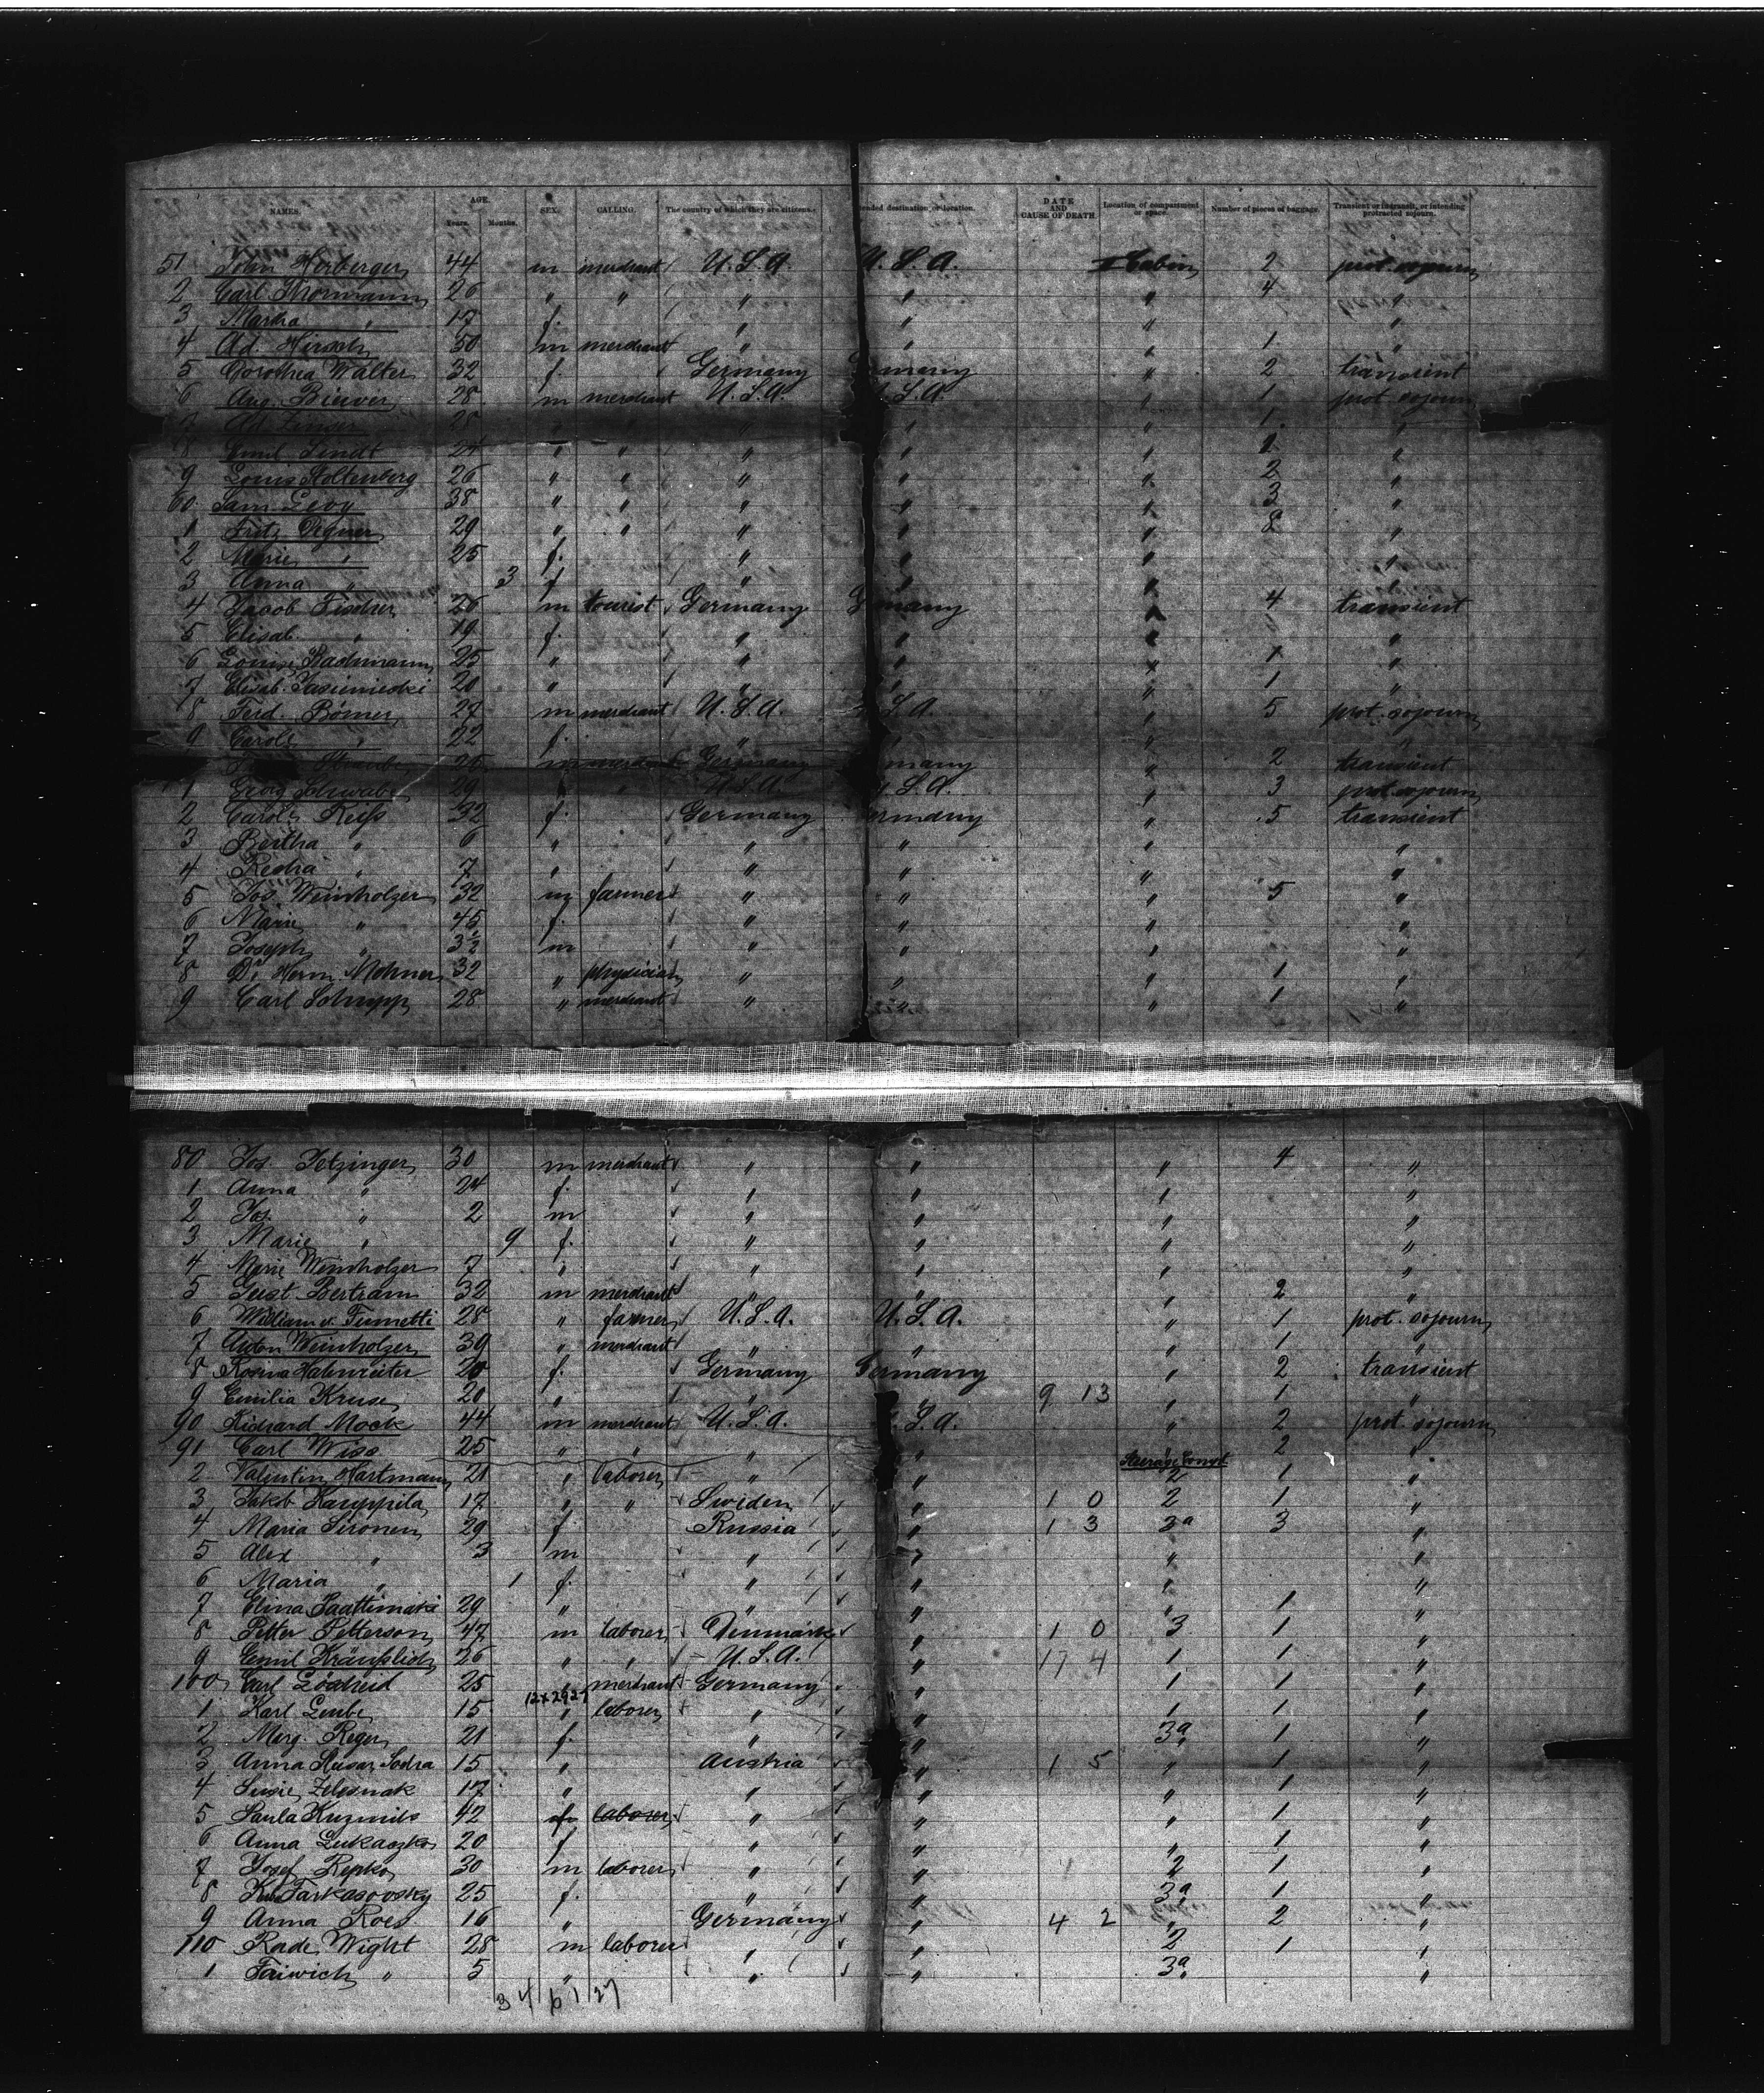 NAMES. AGE. Years. Months. SEX. CALLING. The country of which they are citizens. ended destination, or location. DATE AND CAUSE OF DEATH Location of compartment or space. Number of pieces of baggage. Transient or in transit, or intending protracted sojourn.
51 John Herberger 44 m merchant U.S.A. U.S.A. I Cabin 2 prot. sojourn
2 Carl Thormann 26 " " " " " 4 "
3 Martha " 17 f. " " " "
4 Ad. Hirsch 50 m merchant " " " 1 "
5 Dorothea Walter 32 f. Germany Germany " 2 transient
6 Aug. Biewer 28 m merchant U.S.A. U.S.A. " 1 prot sojourn
7 Ad. 28 " " " " " 1. "
8 Emil Lindt 24 " " " " " 1 "
9 Louis Holtenberg 26 " " " " " 2 "
60 Sam Levy 38 " " " " " 3 "
1 Fritz 29 " " " " " 8 "
2 Marie " 25 f. " " " "
3 Anna " 3 f " " " "
4 Jacob Fischer 26 m tourist Germany Germany " 4 transient
5 Elisab. " 19 f. " " " "
6 Louise Bachmann 25 " " " " 1 "
7 Elisab. 20 " " " " 1 "
8 Ferd. Börner 27 m merchant U.S.A. S.A. " 5 prot. sojourn
9 Carol. " 22 f. " " " "
26 m merchant Germany many " 2 transient
1 Georg Schwab 29 " U.S.A. U.S.A. " 3 prot sojourn
2 Carol. Reiß 32 f. Germany ermany " 5 transient
3 Bertha " 6 " " " " "
4 " 7 " " " " "
5 Jos. Weinholzer 32 m farmer " " " 5 "
6 Marie " 45 f. " " " "
7 Joseph " 3½ m " " " "
8 Dr. Herm. Mohner 32 " physician " " " 1 "
9 Carl Schupp 28 " merchant " " " 1 "
80 Jos. Jetzinger 30 m merchant " " " 4 "
1 Anna " 24 f. " " " "
2 Jos. " 2 m " " " "
3 Marie " 9 f. " " " "
4 Marie Weinholzer 7 " " " " "
5 Gust. Bertram 32 m merchant " " " 2 "
6 William v. 28 " farmer U.S.A. U.S.A. " 1 prot. sojourn
7 Anton Weinholzer 39 " merchant " " " 1 "
8 Rosina 20 f. Germany Germany " 2 transient
9 Emilia Kruse 20 " " " 9 13 " 1 "
90 Richard Mock 44 m merchant U.S.A. S.A. " 2 prot. sojourn
91 Carl Wiss 25 " " " " 2 "
2 Valentin Hartmann 21 " laborer " " Steerage Compt 2 1 "
3 Jakob Kauppila 17 " " Sweden " 1 0 2 1 "
4 Maria Sironen 29 f. Russia " 1 3 3a 3 "
5 Alex " 3 m " " " "
6 Maria " 1 f. " " " "
7 Elina 29 " " " " 1 "
8 Petter Petterson 47 m laborer Denmark " 1 0 3 1 "
9 Emil 26 " " U.S.A. " 17 4 1 1 "
100 Carl 25 " merchant Germany " 1 1 "
12x2927
1 Karl Leube 15 " laborer " " 1 1 "
2 Marg. Reger 21 f. " " 3a 1 "
3 Anna 15 " Austria " 1 5 " 1 "
4 Susie 17 " " " " 1 "
5 Paula 42 laborer " " " 1 "
6 Anna Lukaczko 20 f " " " 1 "
7 Josef Repko 30 m laborer " " 2 1 "
8 Farkasovsky 25 f. " " 3a 1 "
9 Anna Roes 16 " Germany " 4 2 " 2 "
110 Wight 28 m laborer " " 2 1 "
1 " 5 " " " 3a "
34/61/27